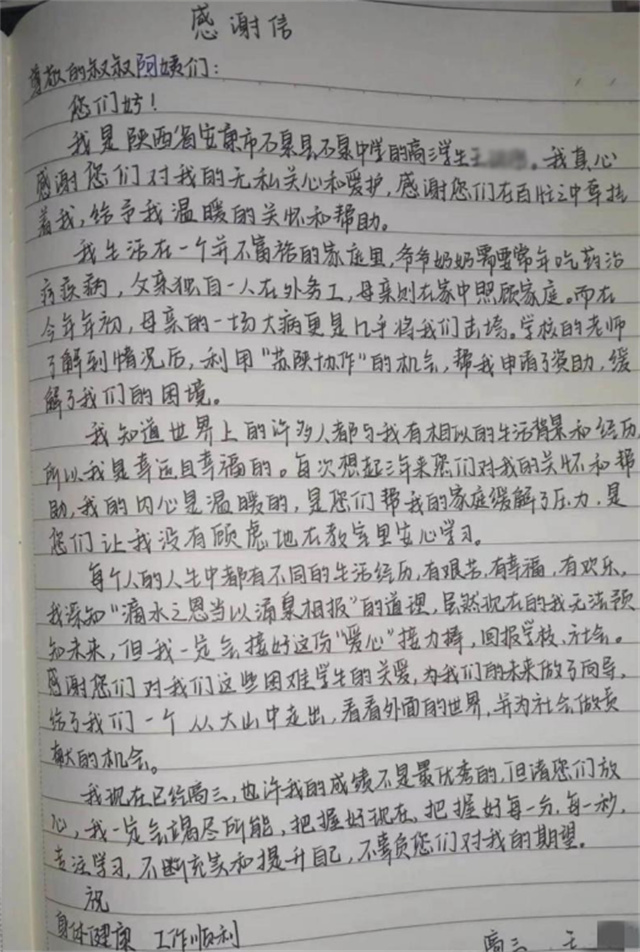 感谢信
尊敬的叔叔阿姨们：
您们好！
我是陕西省安康市石泉县石泉中学的高三学生王。我真心
感谢您们对我的无私关心和爱护，感谢您们在百忙之中牵挂
着我，给予我温暖的关怀和帮助。
我生活在一个并不富裕的家庭里，爷爷奶奶需要常年吃药治
疗疾病，父亲独自一人在外务工，母亲则在家中照顾家庭。而在
今年年初，母亲的一场大病更是几乎将我们击垮。学校的老师
了解到情况后，利用“苏陕协作”的机会，帮我申请了资助，缓
解了我们的困境。
我知道世界上的许多人都与我有相似的生活背景和经历，
所以我是幸运且幸福的。每次想起三年来您们对我的关怀和帮
助，我的内心是温暖的，是您们帮我的家庭缓解了压力，是
您们让我没有顾虑地在教室里安心学习。
每个人的人生中都有不同的生活经历，有艰苦，有幸福，有欢乐，
我深知“滴水之恩当以涌泉相报”的道理，虽然现在的我无法预
知未来，但我一定会接好这份“爱心”接力棒，回报学校、社会。
感谢您们对我们这些困难学生的关爱，为我们的未来做了向导，
给了我们一个从大山中走出，看看外面的世界，并为社会做贡
献的机会。
我现在已经高三，也许我的成绩不是最优秀的，但请您们放
心，我一定会竭尽所能，把握好现在，把握好每一分，每一秒，
专注学习，不断充实和提升自己，不辜负您们对我的期望。
祝
身体健康 工作顺利
高三 王